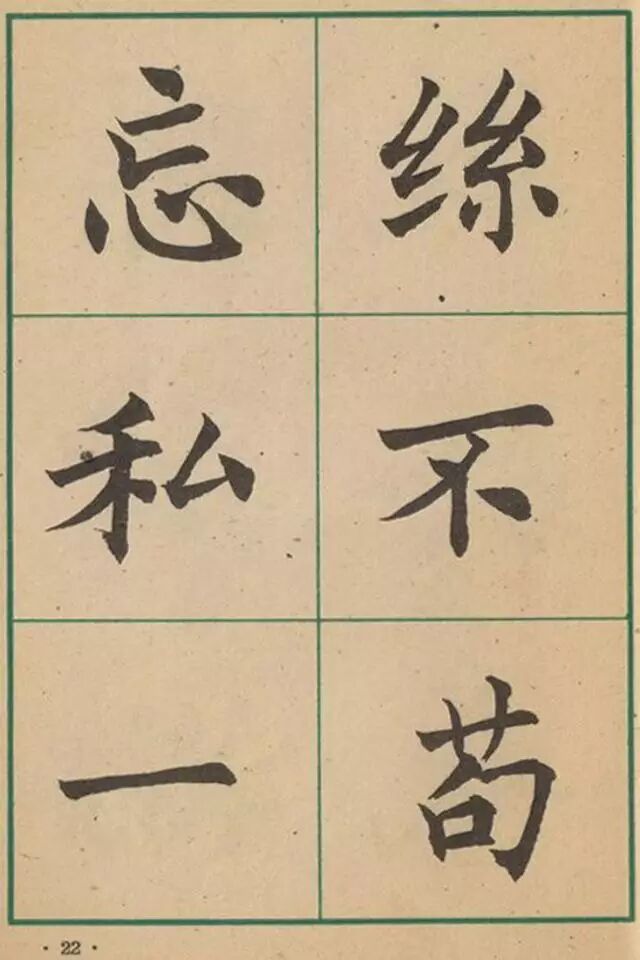 忘私一
絲不苟
·22·